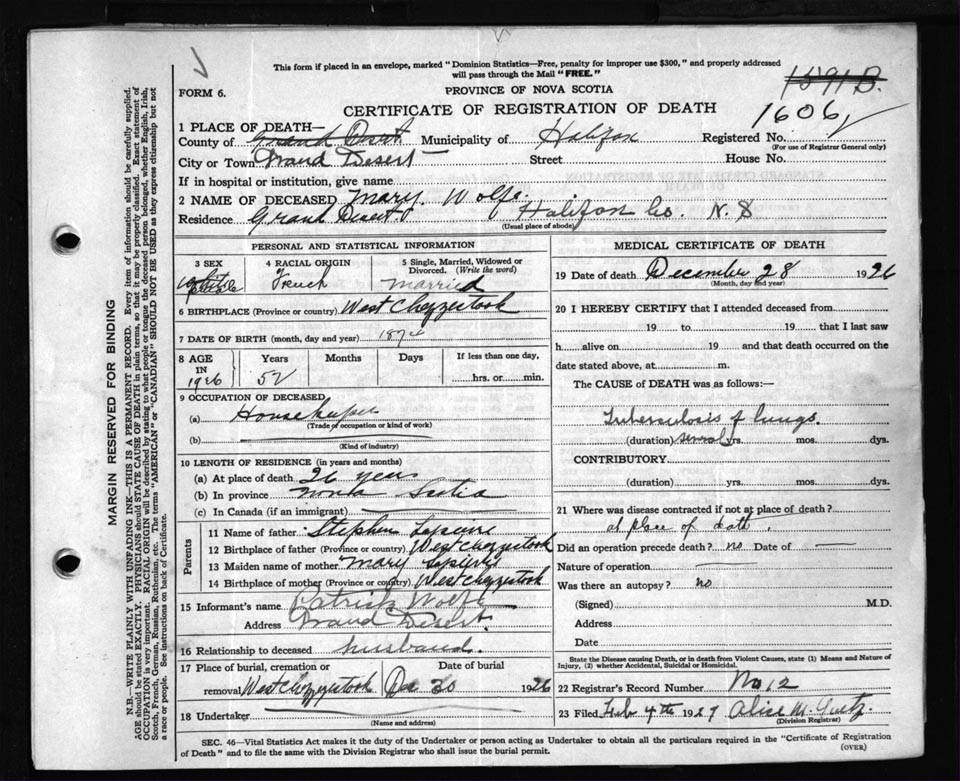 This form if placed in an envelope, marked "Dominion Statistics—Free, penalty for improper use $300," and properly addressed
will pass through the Mail "FREE."
1591 B.
FORM 6.
PROVINCE OF NOVA SCOTIA
CERTIFICATE OF REGISTRATION OF DEATH
1606
1 PLACE OF DEATH—
County of Grand Desert Municipality of Halifax Registered No.
(For use of Registrar General only)
City or Town Grand Desert Street House No.
If in hospital or institution, give name
2 NAME OF DECEASED Mary. Wolfe
Residence Grand Desert Halifax Co. N. S
(Usual place of abode)
PERSONAL AND STATISTICAL INFORMATION
3 SEX 4 RACIAL ORIGIN 5 Single, Married, Widowed or
Divorced. (Write the word)
French married
6 BIRTHPLACE (Province or country) West Chezzetcook
7 DATE OF BIRTH (month, day and year) 1874
8 AGE Years Months Days If less than one day,
IN
1926 52 hrs. or min.
9 OCCUPATION OF DECEASED
(a) Housekeeper
(Trade of occupation or kind of work)
(b)
(Kind of industry)
10 LENGTH OF RESIDENCE (in years and months)
(a) At place of death 26 years
(b) In province Nova Scotia
(c) In Canada (if an immigrant)
Parents
11 Name of father Stephen
12 Birthplace of father (Province or country) West Chezzetcook
13 Maiden name of mother Mary
14 Birthplace of mother (Province or country) West Chezzetcook
15 Informant's name Patrick Wolfe
Address Grand Desert.
16 Relationship to deceased husband.
17 Place of burial, cremation or Date of burial
removal West Chezzetcook Dec 30 1926
18 Undertaker
(Name and address)
MEDICAL CERTIFICATE OF DEATH
19 Date of death December 28 1926
(Month, day and year)
20 I HEREBY CERTIFY that I attended deceased from
19 to 19 that I last saw
h alive on 19 and that death occurred on the
date stated above, at m.
The CAUSE of DEATH was as follows:—
Tuberculosis of lungs.
(duration) several yrs. mos. dys.
CONTRIBUTORY
(duration) yrs. mos. dys.
21 Where was disease contracted if not at place of death?
at place of death.
Did an operation precede death? no Date of
Nature of operation
Was there an autopsy? no
(Signed) M.D.
Address
Date
State the Disease causing Death, or in death from Violent Causes, state (1) Means and Nature of
Injury, (2) whether Accidental, Suicidal or Homicidal.
22 Registrar's Record Number No 12
23 Filed Feb 4th 1927 Alice M.
(Division Registrar)
SEC. 46—Vital Statistics Act makes it the duty of the Undertaker or person acting as Undertaker to obtain all the particulars required in the "Certificate of Registration
of Death" and to file the same with the Division Registrar who shall issue the burial permit.
(OVER)
MARGIN RESERVED FOR BINDING
N.B.—WRITE PLAINLY WITH UNFADING INK—THIS IS A PERMANENT RECORD. Every item of information should be carefully supplied.
AGE should be stated EXACTLY. PHYSICIANS should STATE CAUSE OF DEATH in plain terms, so that it may be properly classified. Exact statement of
OCCUPATION is very important. RACIAL ORIGIN will be described by stating to what people or tongue the deceased person belonged, whether English, Irish,
Scotch, French, German, Russian, Ruthenian, etc. The terms "AMERICAN" or "CANADIAN" SHOULD NOT BE USED as they express citizenship but not
a race or people. See instructions on back of Certificate.